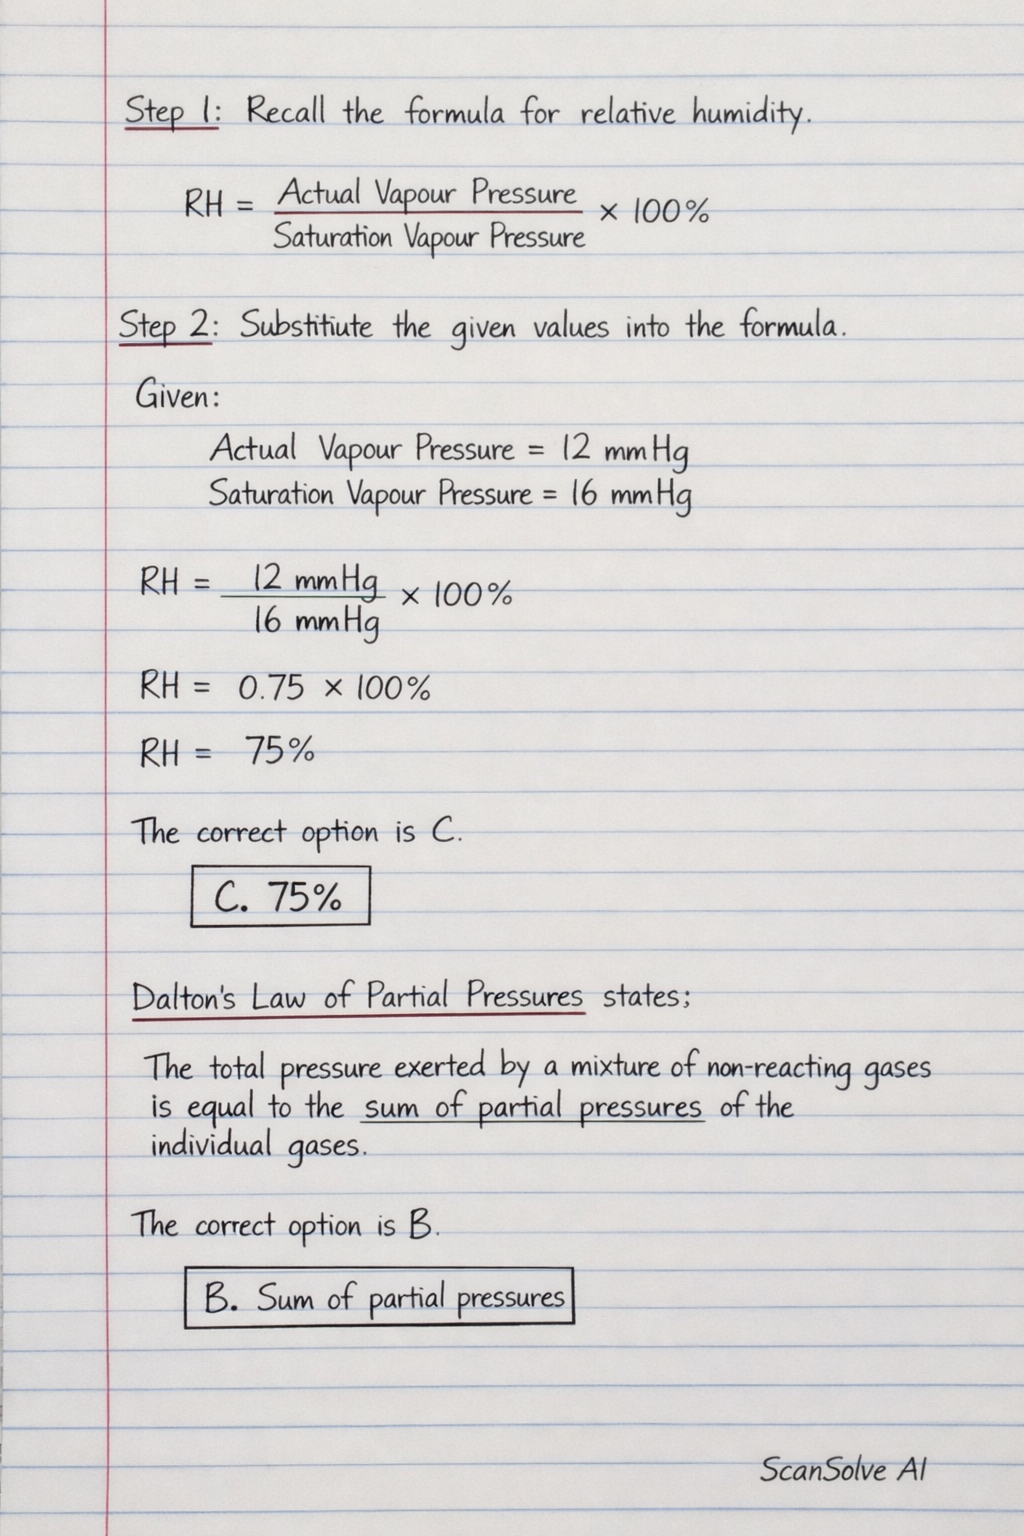 Step 1: Recall the formula for relative humidity.
RH = Actual Vapour Pressure / Saturation Vapour Pressure × 100%
Step 2: Substitiute the given values into the formula.
Given:
Actual Vapour Pressure = 12 mmHg
Saturation Vapour Pressure = 16 mmHg
RH = 12 mmHg / 16 mmHg × 100%
RH = 0.75 × 100%
RH = 75%
The correct option is C.
C. 75%
Dalton's Law of Partial Pressures states;
The total pressure exerted by a mixture of non-reacting gases
is equal to the sum of partial pressures of the
individual gases.
The correct option is B.
B. Sum of partial pressures
ScanSolve AI